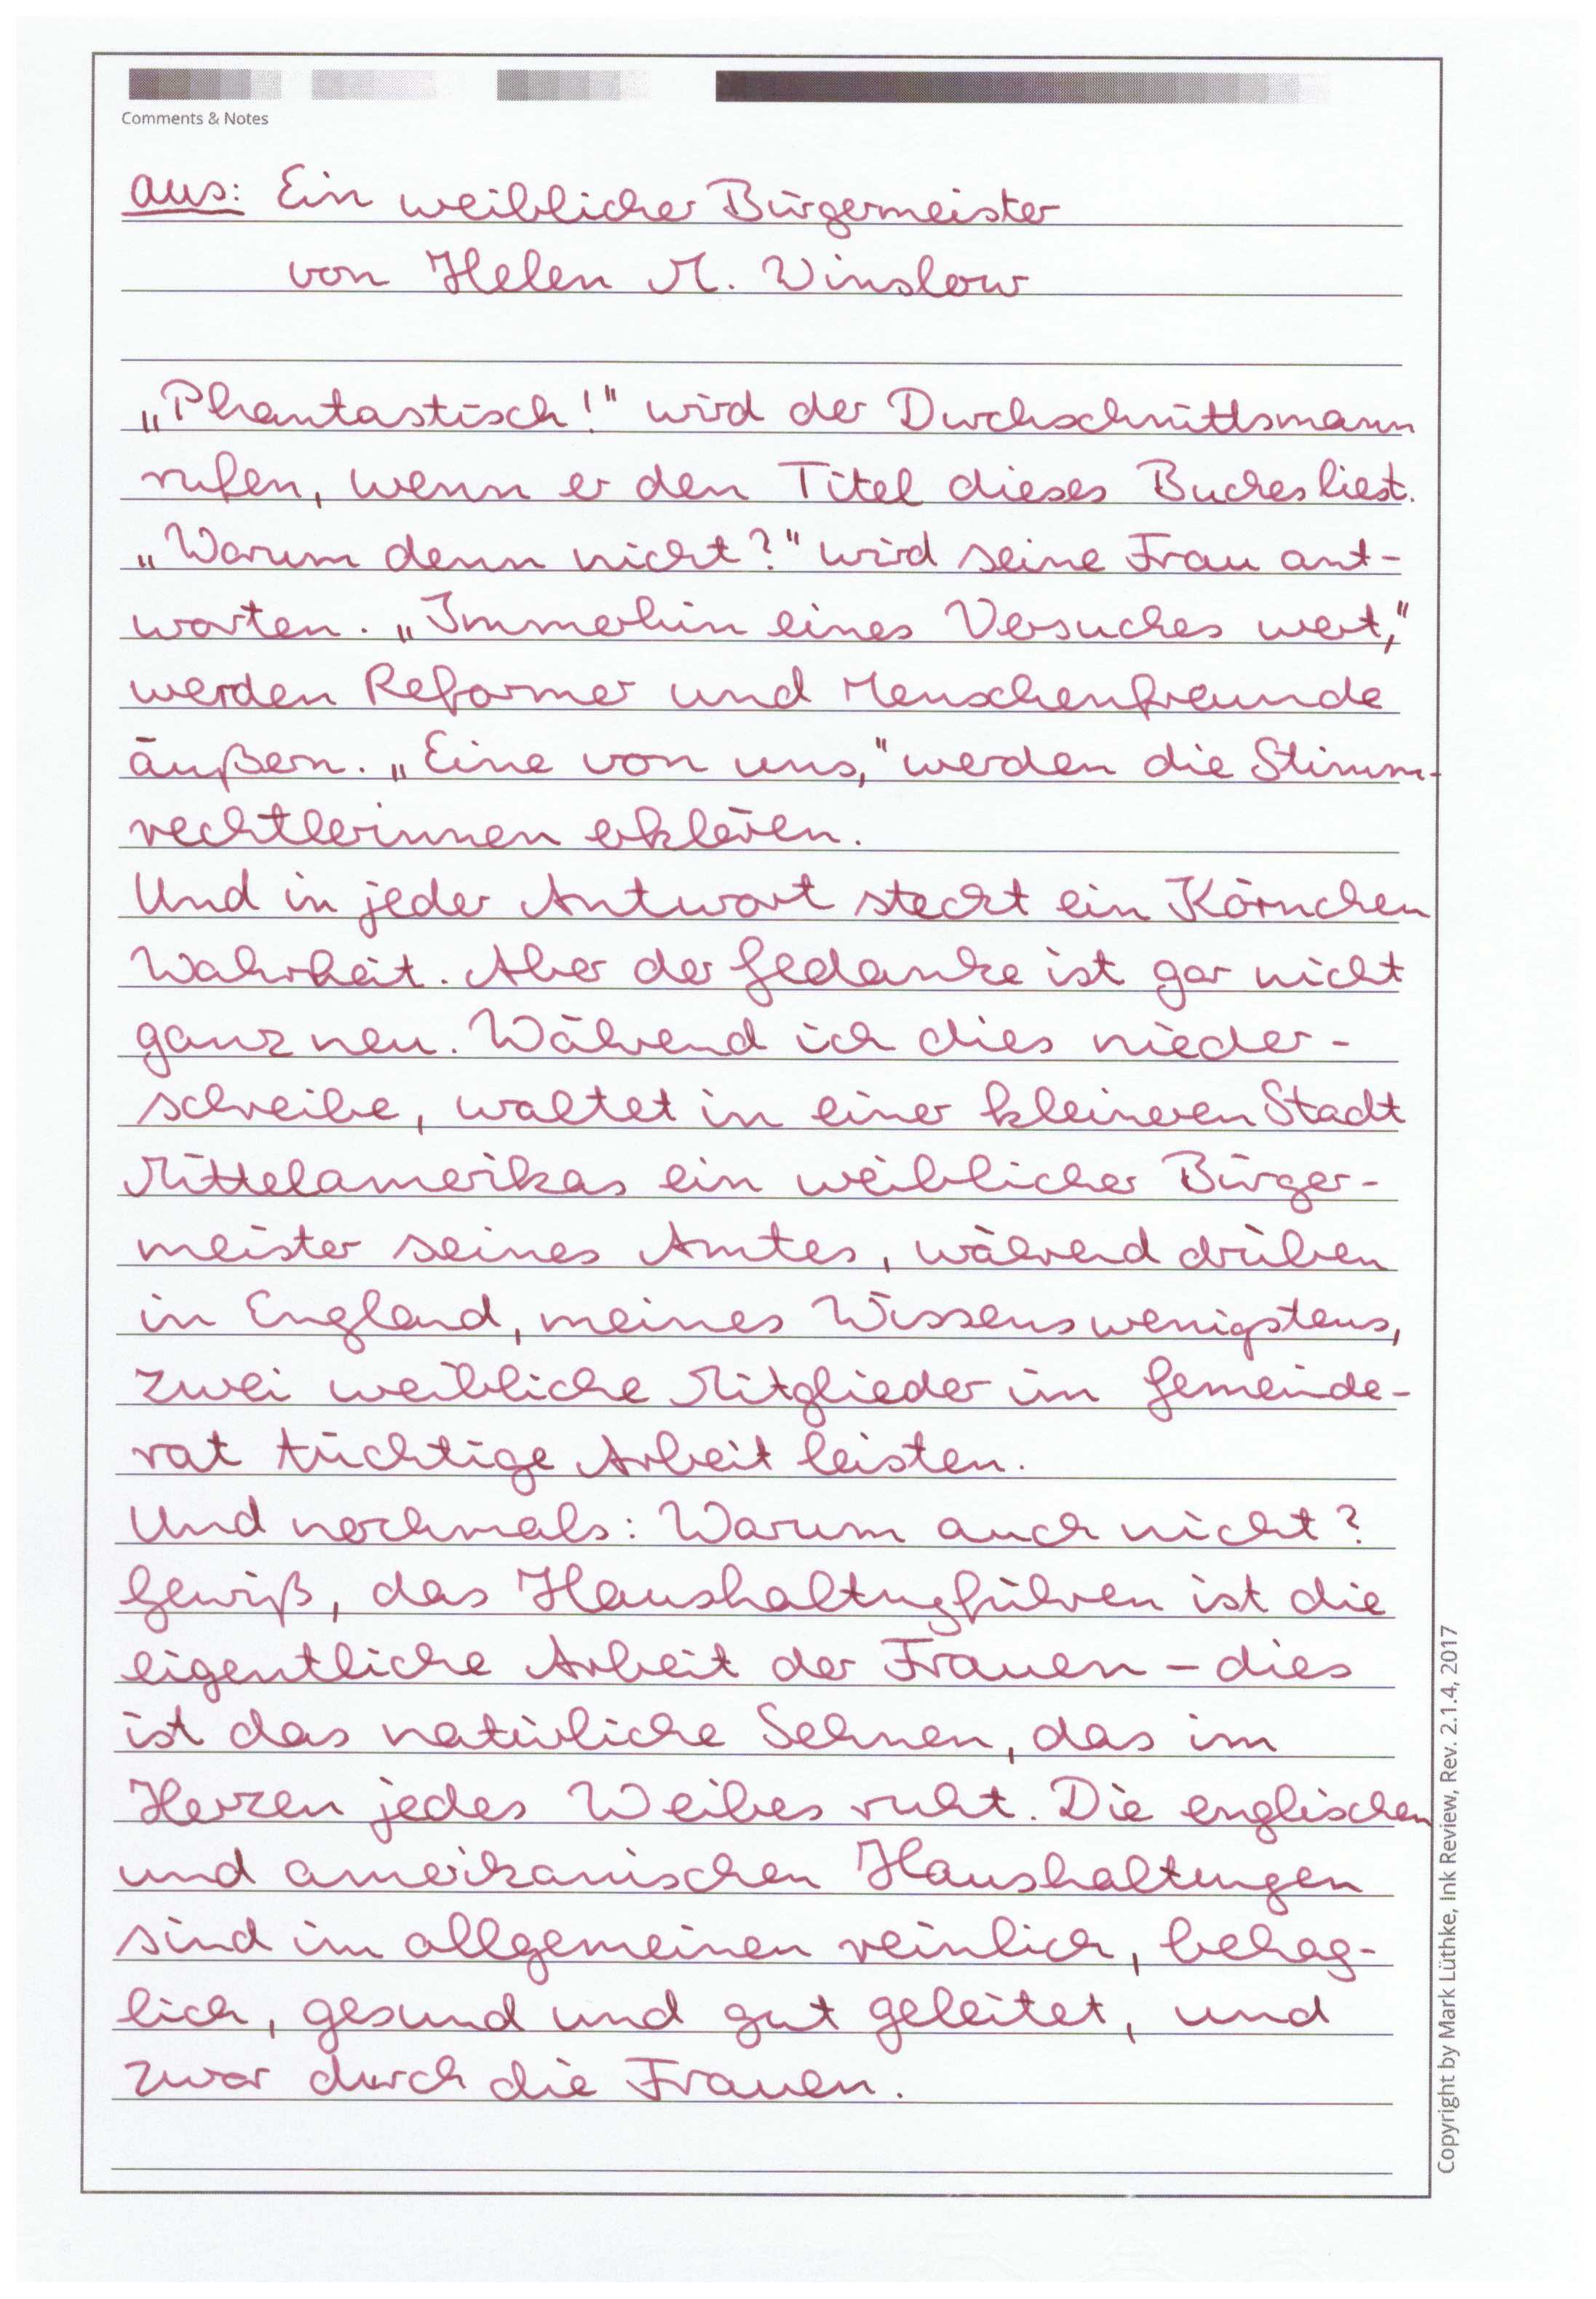 Comments & Notes
aus: Ein weiblicher Bürgermeister
von Helen M. Winslow
„Phantastisch!" wird der Durchschnittsmann
rufen, wenn er den Titel dieses Buches liest.
„Warum denn nicht?" wird seine Frau ant-
worten. „Immerhin eines Versuches wert,"
werden Reformer und Menschenfreunde
äußern. „Eine von uns," werden die Stimm-
rechtlerinnen erklären.
Und in jeder Antwort steckt ein Körnchen
Wahrheit. Aber der Gedanke ist gar nicht
ganz neu. Während ich dies nieder-
schreibe, waltet in einer kleineren Stadt
Mittelamerikas ein weiblicher Bürger-
meister seines Amtes, während drüben
in England, meines Wissens wenigstens,
zwei weibliche Mitglieder im Gemeinde-
rat tüchtige Arbeit leisten.
Und nochmals: Warum auch nicht?
Gewiß, das Haushaltungführen ist die
eigentliche Arbeit der Frauen – dies
ist das natürliche Sehnen, das im
Herzen jedes Weibes ruht. Die englischen
und amerikanischen Haushaltungen
sind im allgemeinen reinlich, behag-
lich, gesund und gut geleitet, und
zwar durch die Frauen.
Copyright by Mark Lüthke, Ink Review, Rev. 2.1.4, 2017